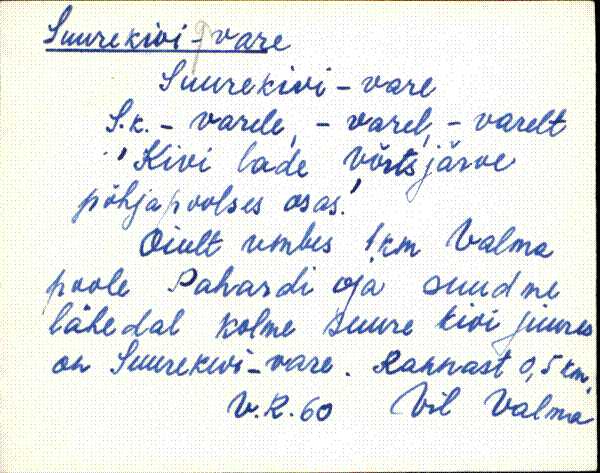 Suurekivi-vare
Suurekivi - vare
S.k. - varele, - varel, - varelt
'Kivi lade Võrtsjärve
põhjapoolses osas.'
Oiult umbes 1 km Valma
poole Pahardi oja suudme
lähedal kolme suure kivi juures
on Suurekivi-vare. Rannast 0,5 km.
V.R. 60 Vil Valma